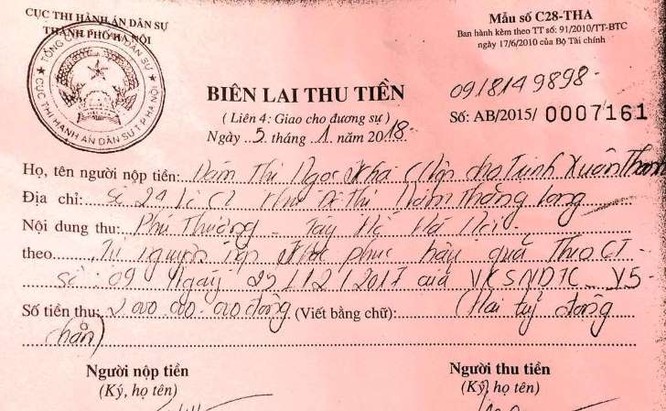 CỤC THI HÀNH ÁN DÂN SỰ
THÀNH PHỐ HÀ NỘI
Mẫu số C28-THA
Ban hành kèm theo TT số: 91/2010/TT-BTC
ngày 17/6/2010 của Bộ Tài chính
CỤC THI HÀNH ÁN DÂN SỰ T.P HÀ NỘI
BIÊN LAI THU TIỀN
0918149898
(Liên 4: Giao cho đương sự)
Số: AB/2015/ 0007161
Ngày 5 tháng 1 năm 2018
Họ, tên người nộp tiền: Đàm Thị Ngọc Kha (Nộp cho Trịnh Xuân Thanh
Địa chỉ: Số 24 Khu Đô Thị Nam Thăng Long
Nội dung thu: Phú Thượng - Tây Hồ Hà Nội
theo Tự nguyện nộp khắc phục hậu quả Theo CT
Số: 09 Ngày 25/12/2017 của VKSNDTC V5
Số tiền thu: 2.000.000.000 đồng (Viết bằng chữ): (Hai tỷ đồng
chẵn)
Người nộp tiền
Người thu tiền
(Ký, họ tên)
(Ký, họ tên)